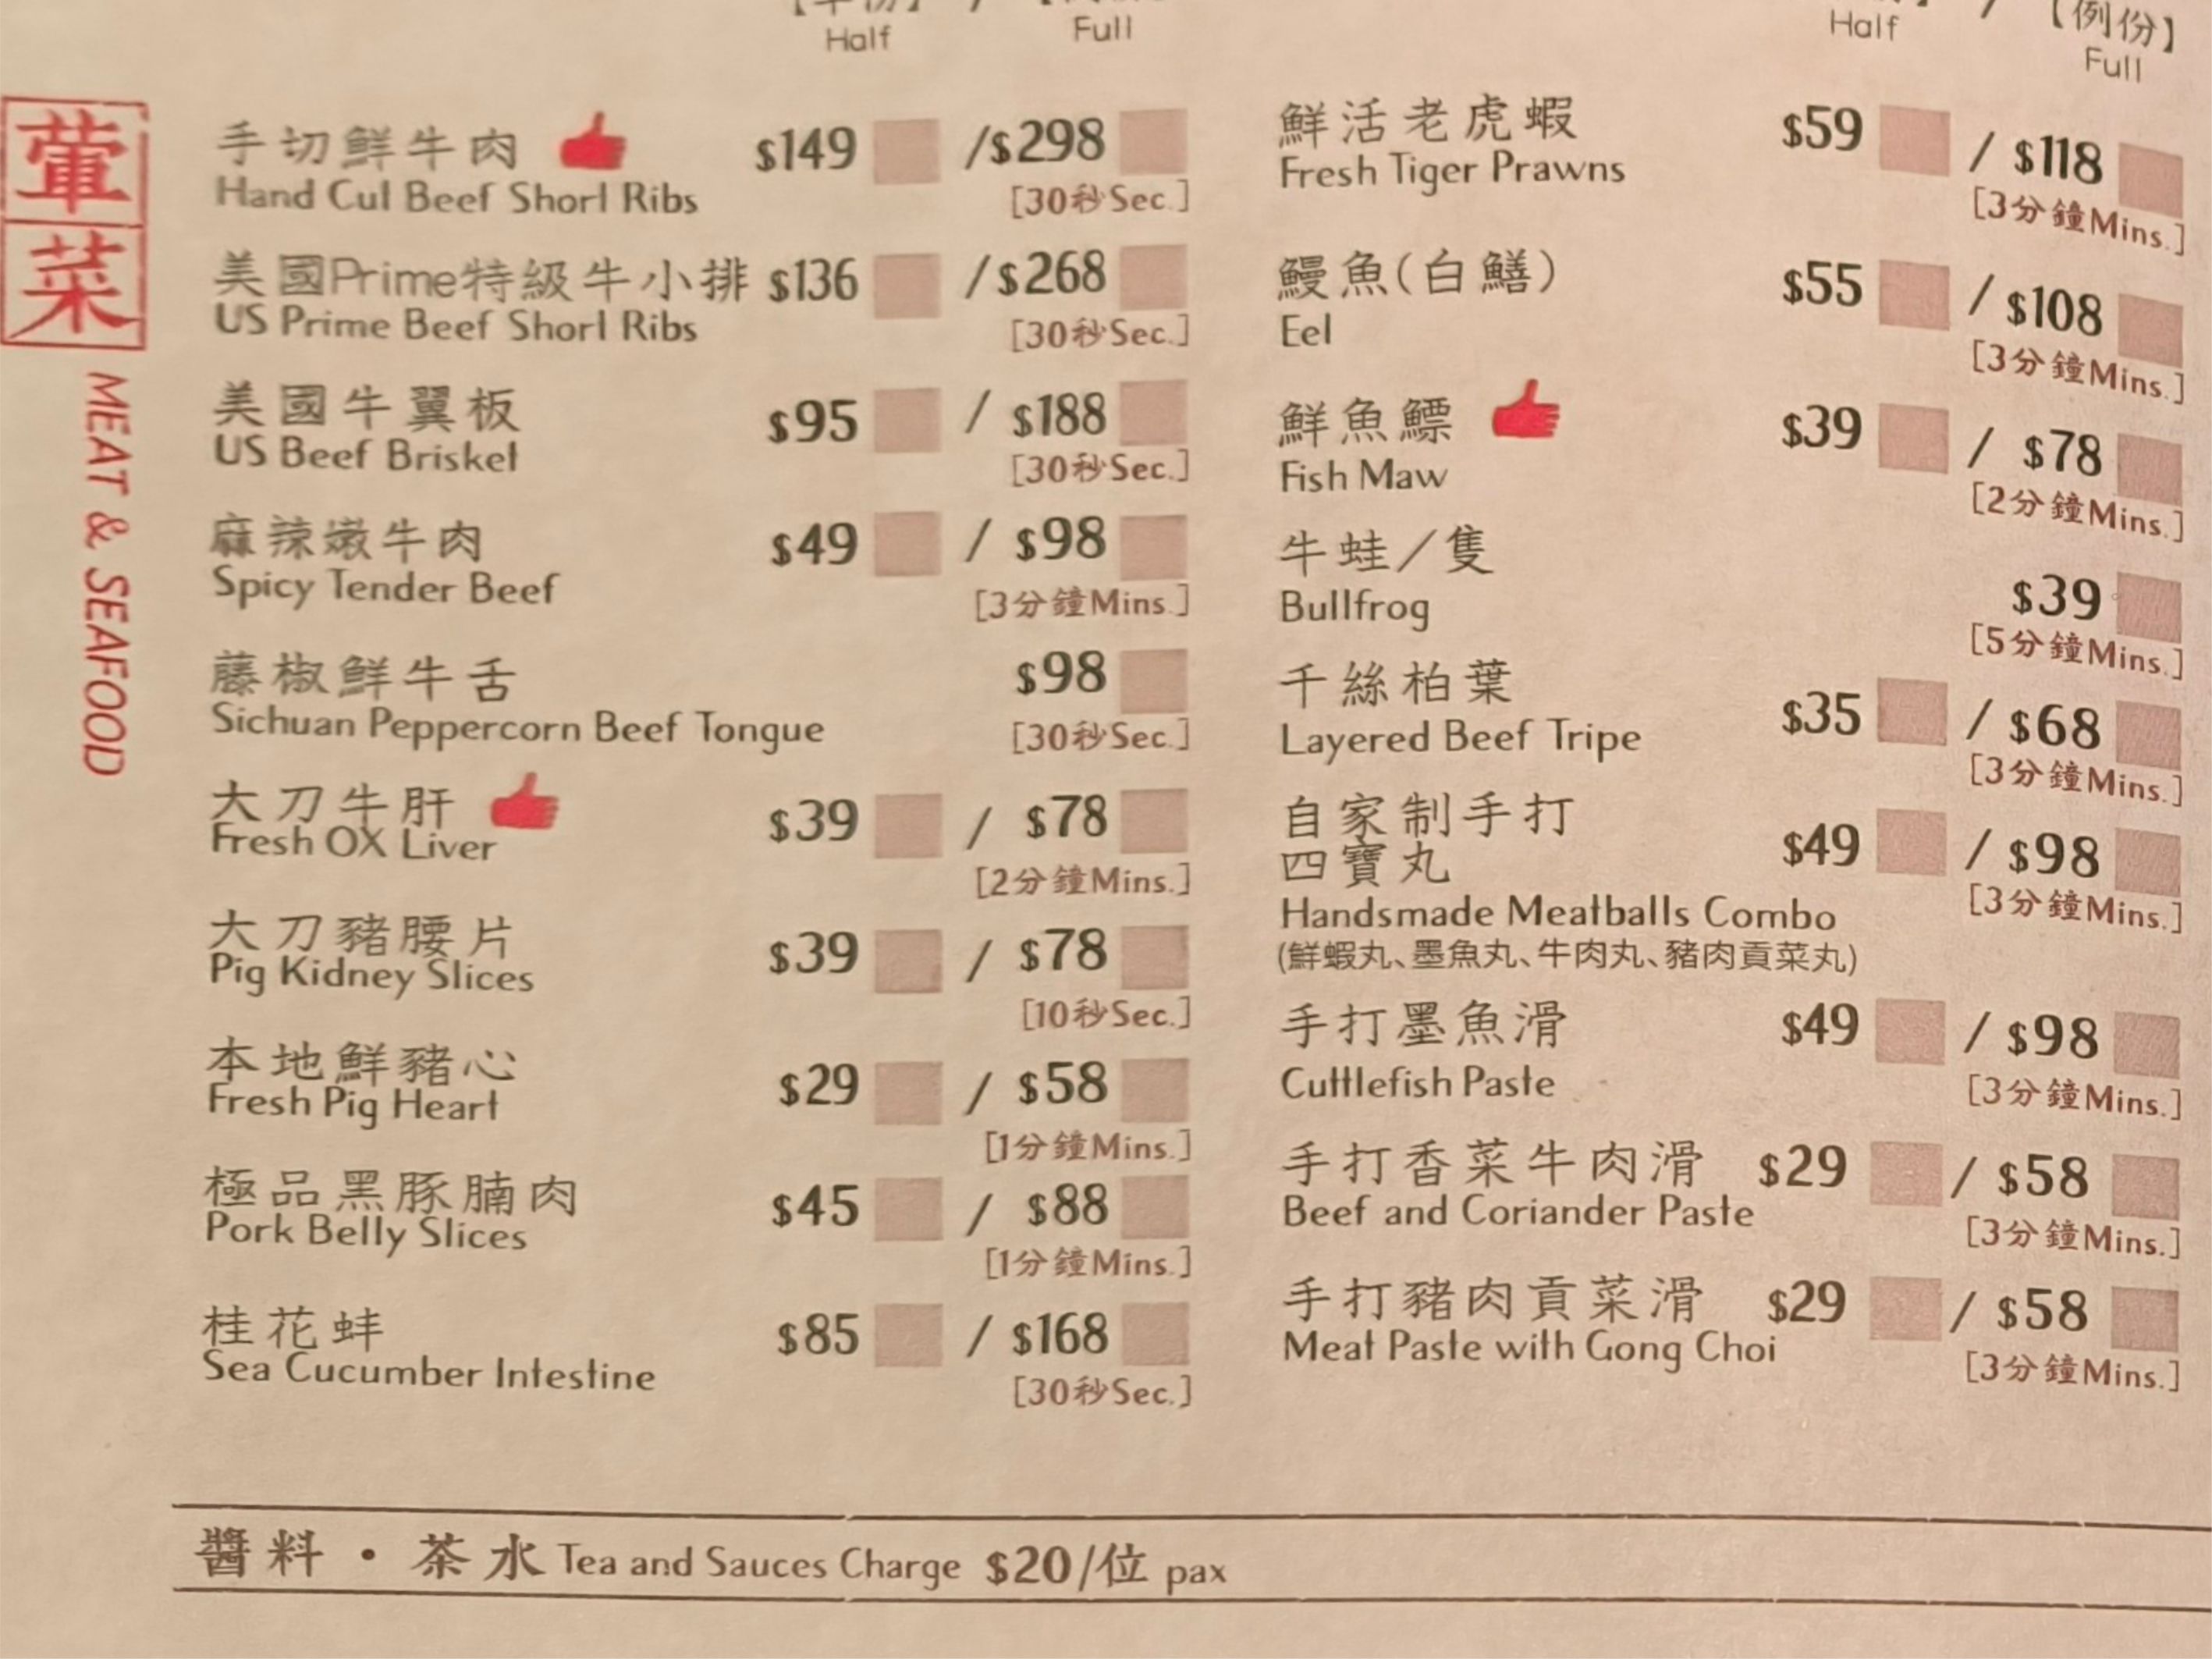 Half / Full
葷菜
MEAT & SEAFOOD
手切鮮牛肉 $149 /$298
Hand Cut Beef Short Ribs [30秒Sec.]
美國Prime特級牛小排 $136 /$268
US Prime Beef Short Ribs [30秒Sec.]
美國牛翼板 $95 / $188
US Beef Brisket [30秒Sec.]
麻辣嫩牛肉 $49 / $98
Spicy Tender Beef [3分鐘Mins.]
藤椒鮮牛舌 $98
Sichuan Peppercorn Beef Tongue [30秒Sec.]
大刀牛肝 $39 / $78
Fresh OX Liver [2分鐘Mins.]
大刀豬腰片 $39 / $78
Pig Kidney Slices [10秒Sec.]
本地鮮豬心 $29 / $58
Fresh Pig Heart [1分鐘Mins.]
極品黑豚腩肉 $45 / $88
Pork Belly Slices [1分鐘Mins.]
桂花蚌 $85 / $168
Sea Cucumber Intestine [30秒Sec.]
/ 【例份】
Half Full
鮮活老虎蝦 $59 / $118
Fresh Tiger Prawns [3分鐘Mins.]
鰻魚(白鱔) $55 / $108
Eel [3分鐘Mins.]
鮮魚鰾 $39 / $78
Fish Maw [2分鐘Mins.]
牛蛙／隻 $39
Bullfrog [5分鐘Mins.]
千絲柏葉 $35 / $68
Layered Beef Tripe [3分鐘Mins.]
自家制手打
四寶丸 $49 / $98
Handsmade Meatballs Combo [3分鐘Mins.]
(鮮蝦丸、墨魚丸、牛肉丸、豬肉貢菜丸)
手打墨魚滑 $49 / $98
Cuttlefish Paste [3分鐘Mins.]
手打香菜牛肉滑 $29 / $58
Beef and Coriander Paste [3分鐘Mins.]
手打豬肉貢菜滑 $29 / $58
Meat Paste with Gong Choi [3分鐘Mins.]
醬料・茶水 Tea and Sauces Charge $20/位 pax